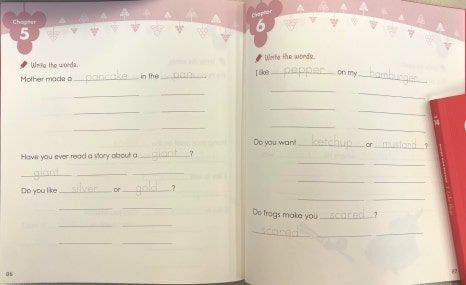 Chapter
5
Write the words.
Mother made a pancake in the pan.
Have you ever read a story about a giant?
giant
Do you like silver or gold?
86
Chapter
6
Write the words.
I like pepper on my hamburger.
Do you want ketchup or mustard?
Do frogs make you scared?
scared
87